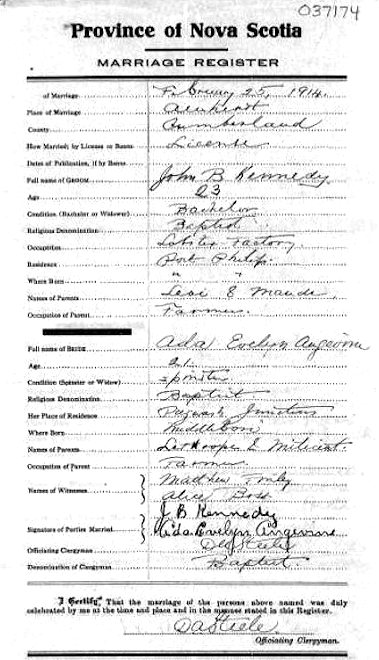 037174
Province of Nova Scotia
MARRIAGE REGISTER
of Marriage February 25, 1914.
Place of Marriage Amherst
County Cumberland
How Married; by License or Banns License
Dates of Publication, if by Banns
Full name of GROOM John B Kennedy
Age 23
Condition (Bachelor or Widower) Bachelor
Religious Denomination Baptist
Occupation Lobster Factory
Residence Port Philip
Where Born " "
Names of Parents Levi & Maude
Occupation of Parent Farmer
Full name of BRIDE Ada Evelyn Angevine
Age 21
Condition (Spinster or Widow) Spinster
Religious Denomination Baptist
Her Place of Residence Pugwash Junction
Where Born Middleboro
Names of Parents & Milicent
Occupation of Parent Farmer
Names of Witnesses Matthew
Alice
J. B Kennedy
Signature of Parties Married Ada Evelyn Angevine
Officiating Clergyman D A Steele
Denomination of Clergyman Baptist
I Certify, That the marriage of the persons above named was duly
celebrated by me at the time and place and in the manner stated in this Register.
D A Steele
Officiating Clergyman.